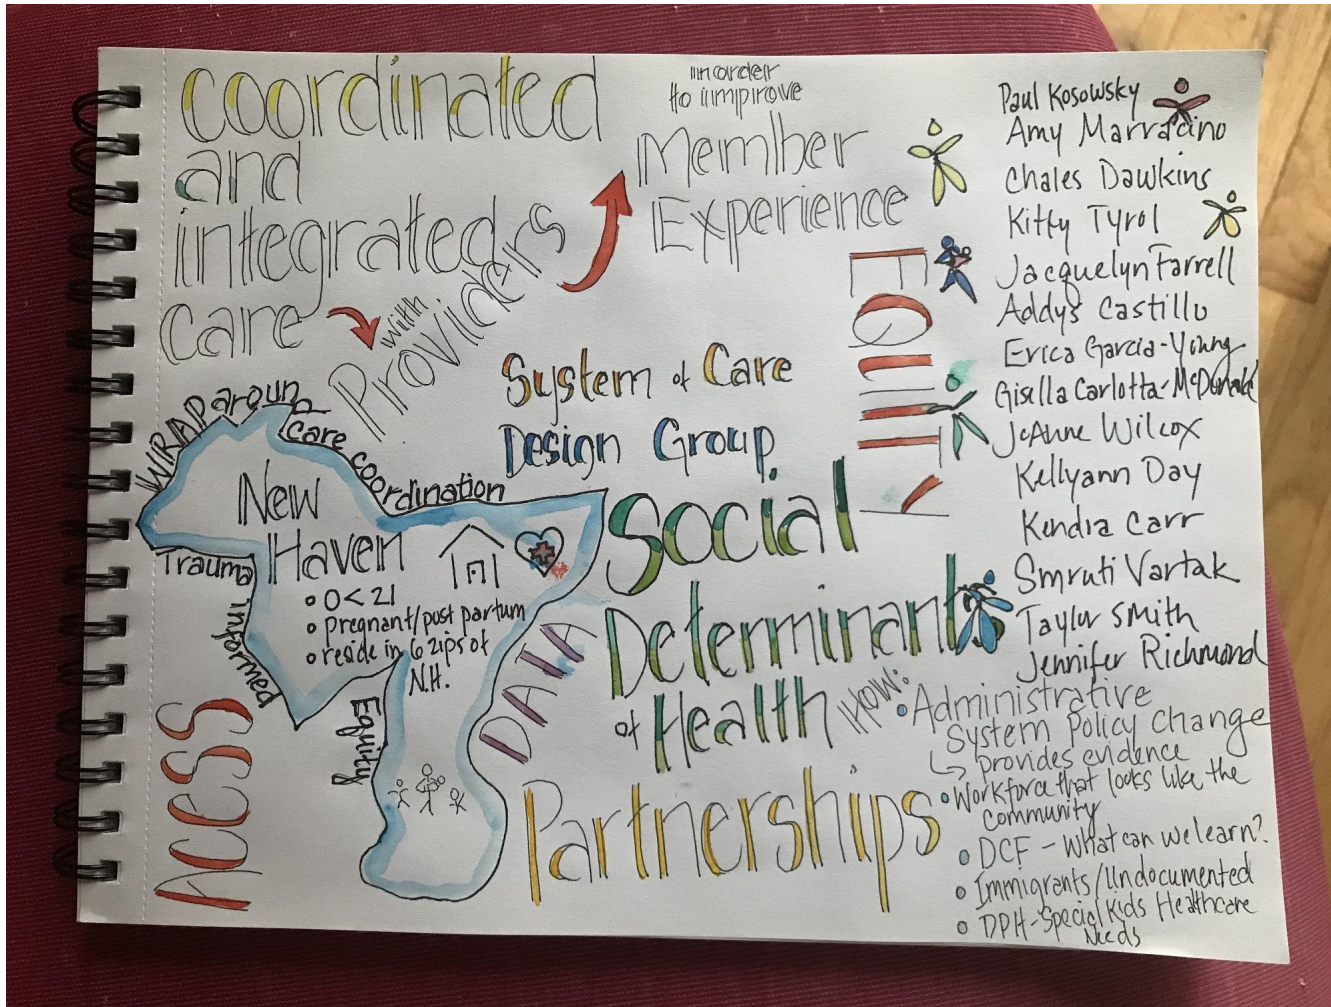 coordinated
and
integrated
care
with
Providers
in order
to improve
Member
Experience
EQUITY
System of Care
Design Group
WRAP around
care coordination
New
Haven
• 0<21
• pregnant/post partum
• reside in 6 zips of
N.H.
Trauma
informed
Equity
ACESS
DATA
Social
Determinants
of Health
Partnerships
Paul Kosowsky
Amy Marracino
Chales Dawkins
Kitty Tyrol
Jacquelyn Farrell
Addys Castillo
Erica Garcia-Young
Gisella Carlotta-McDonald
JoAnne Wilcox
Kellyann Day
Kendra Carr
Smruti Vartak
Taylor Smith
Jennifer Richmond
How:
• Administrative
System Policy Change
↳ provides evidence
• Workforce that looks like the
community
• DCF - What can we learn?
• Immigrants/Undocumented
• DPH-Special Kids Healthcare
Needs